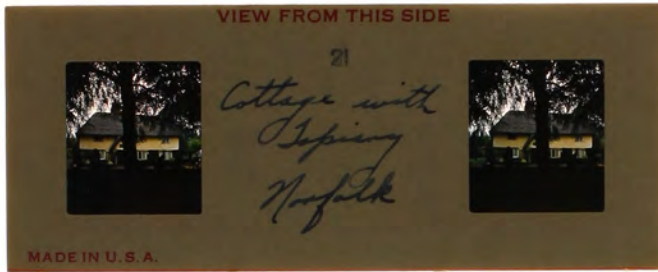 VIEW FROM THIS SIDE
21
Cottage with
Topiary
Norfolk
MADE IN U.S.A.